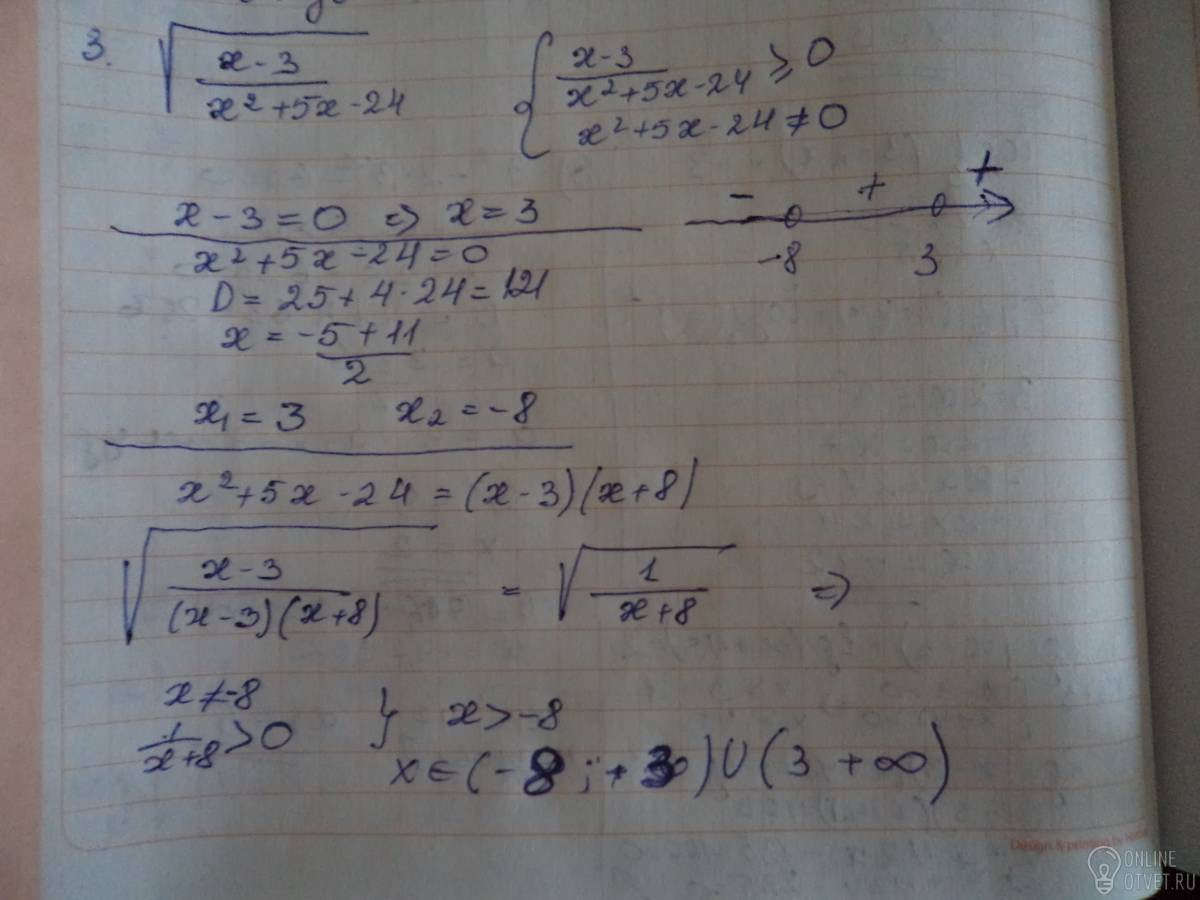 3. √((x-3)/(x²+5x-24)) { (x-3)/(x²+5x-24) ≥ 0
x²+5x-24 ≠ 0
x-3=0 => x=3
- + +
-8 3
x²+5x-24=0
D = 25+4·24=121
x = (-5+11)/2
x₁ = 3 x₂ = -8
x²+5x-24 = (x-3)(x+8)
√((x-3)/((x-3)(x+8))) = √(1/(x+8)) =>
x≠-8
1/(x+8) > 0 } x > -8
x ∈ (-8 ; +3) ∪ (3 +∞)
Design & printing by
ONLINE
OTVET.RU